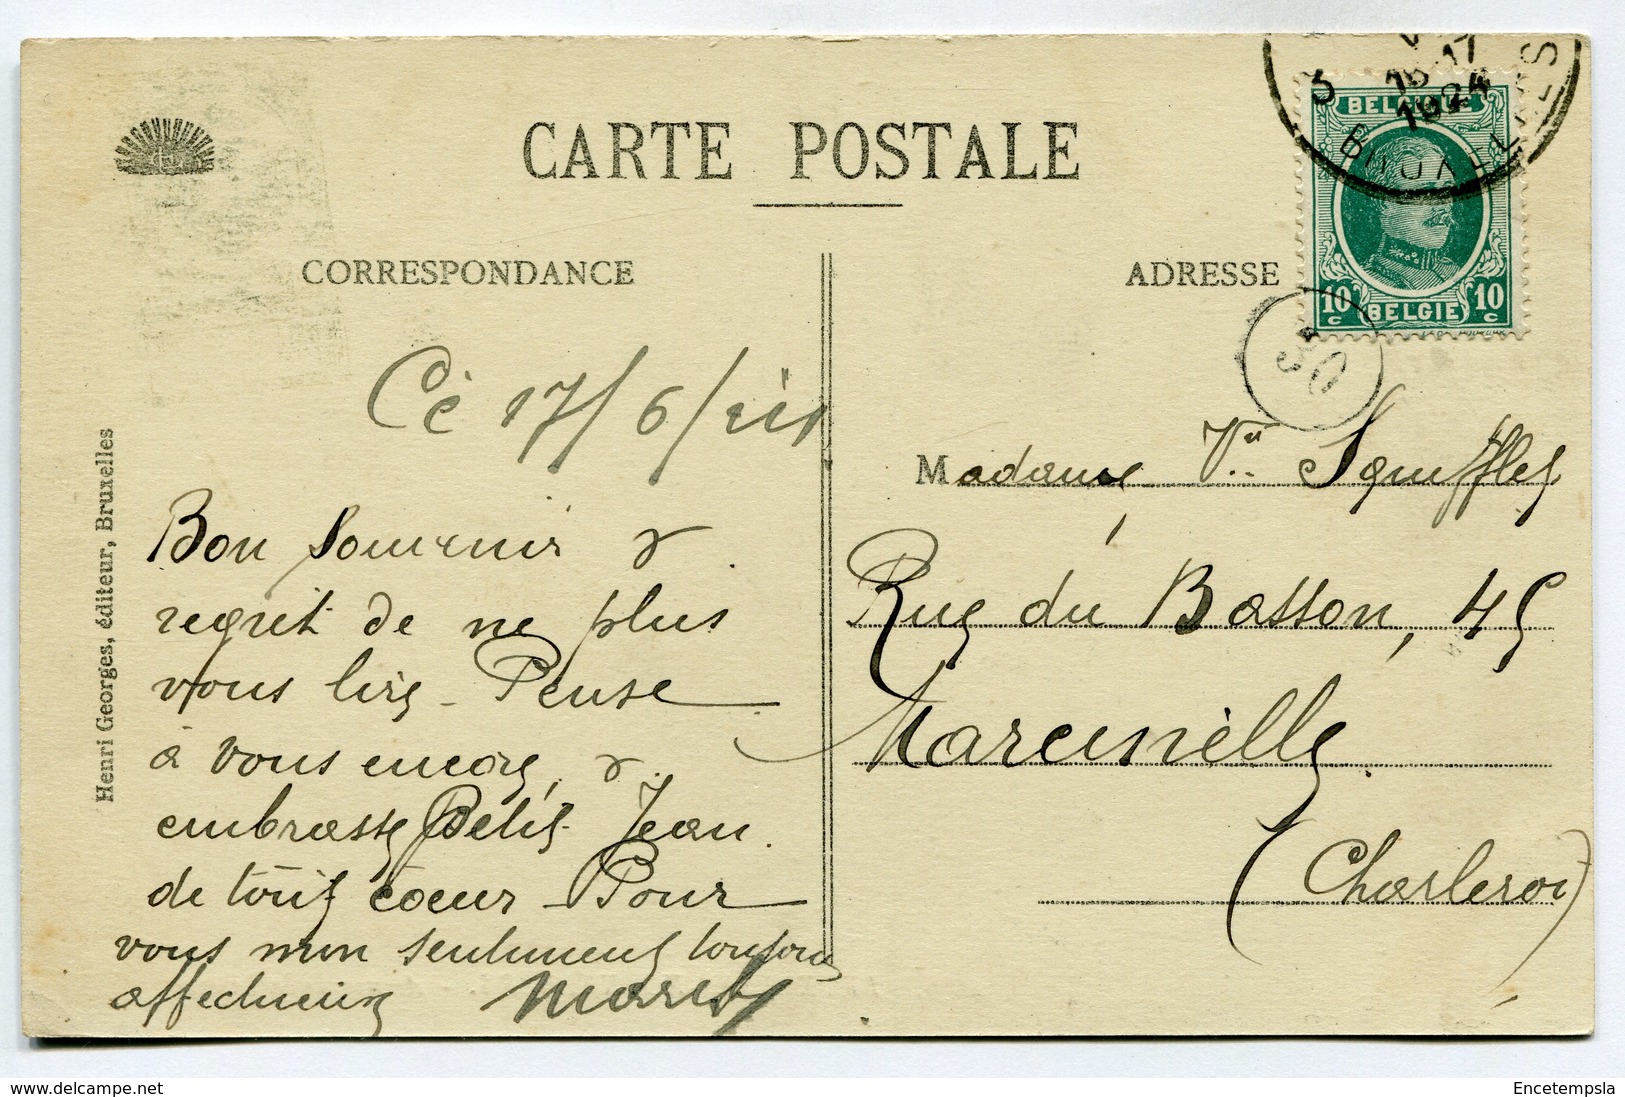 CARTE POSTALE
CORRESPONDANCE
ADRESSE
3
16-17
1924
BRUXELLES
BELGIQUE
10 c BELGIE 10 c
30
Henri Georges, éditeur, Bruxelles
Ce 17/6/24
Bon Souvenir &
regret de ne plus
vous lire - Pense
à vous encore, &
embrasse Petit Jean.
de tout coeur - Pour
vous mon sentiment toujours
affectueux
Madame Vve Squifflet
Rue du Basson, 45
Marcinelle
(Charleroi)
delcampe.net
Encetempsla